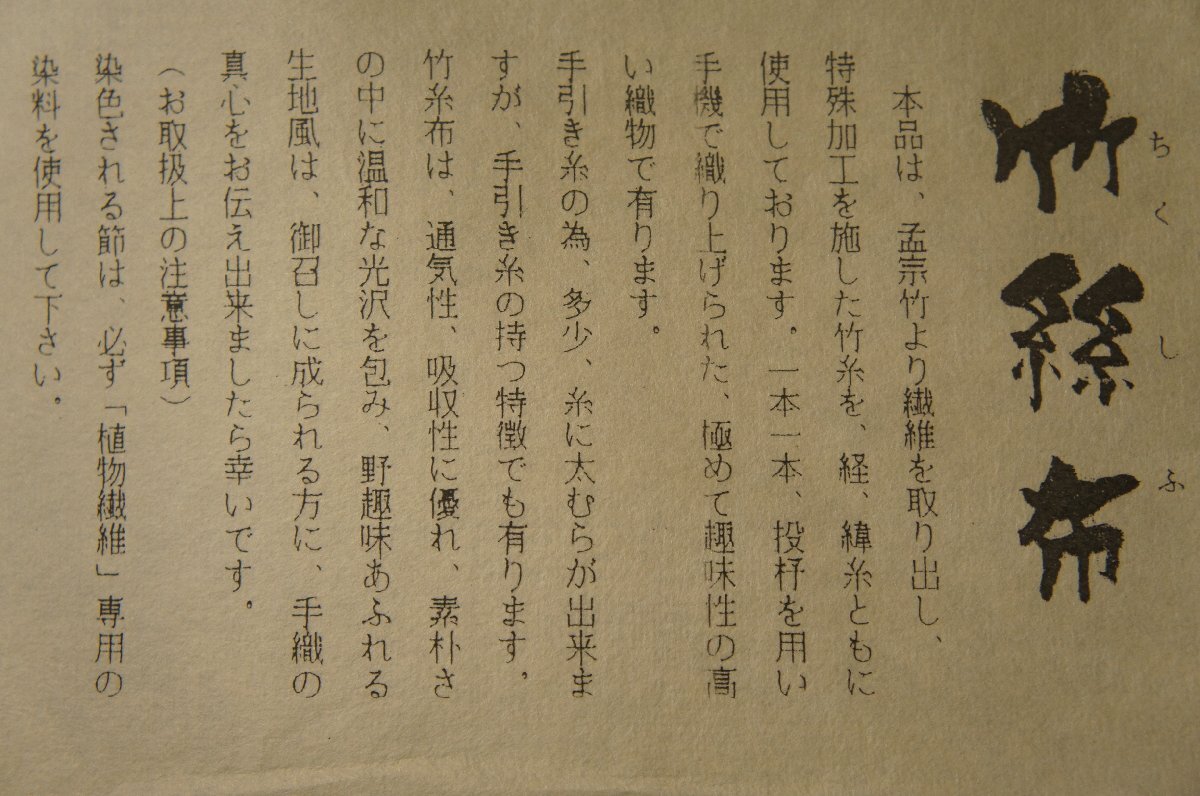 竹絲布
ちくしふ
本品は、孟宗竹より繊維を取り出し、
特殊加工を施した竹糸を、経、緯糸ともに
使用しております。一本一本、投杼を用い
手機で織り上げられた、極めて趣味性の高
い織物で有ります。
手引き糸の為、多少、糸に太むらが出来ま
すが、手引き糸の持つ特徴でも有ります。
竹糸布は、通気性、吸収性に優れ、素朴さ
の中に温和な光沢を包み、野趣味あふれる
生地風は、御召しに成られる方に、手織の
真心をお伝え出来ましたら幸いです。
（お取扱上の注意事項）
染色される節は、必ず「植物繊維」専用の
染料を使用して下さい。